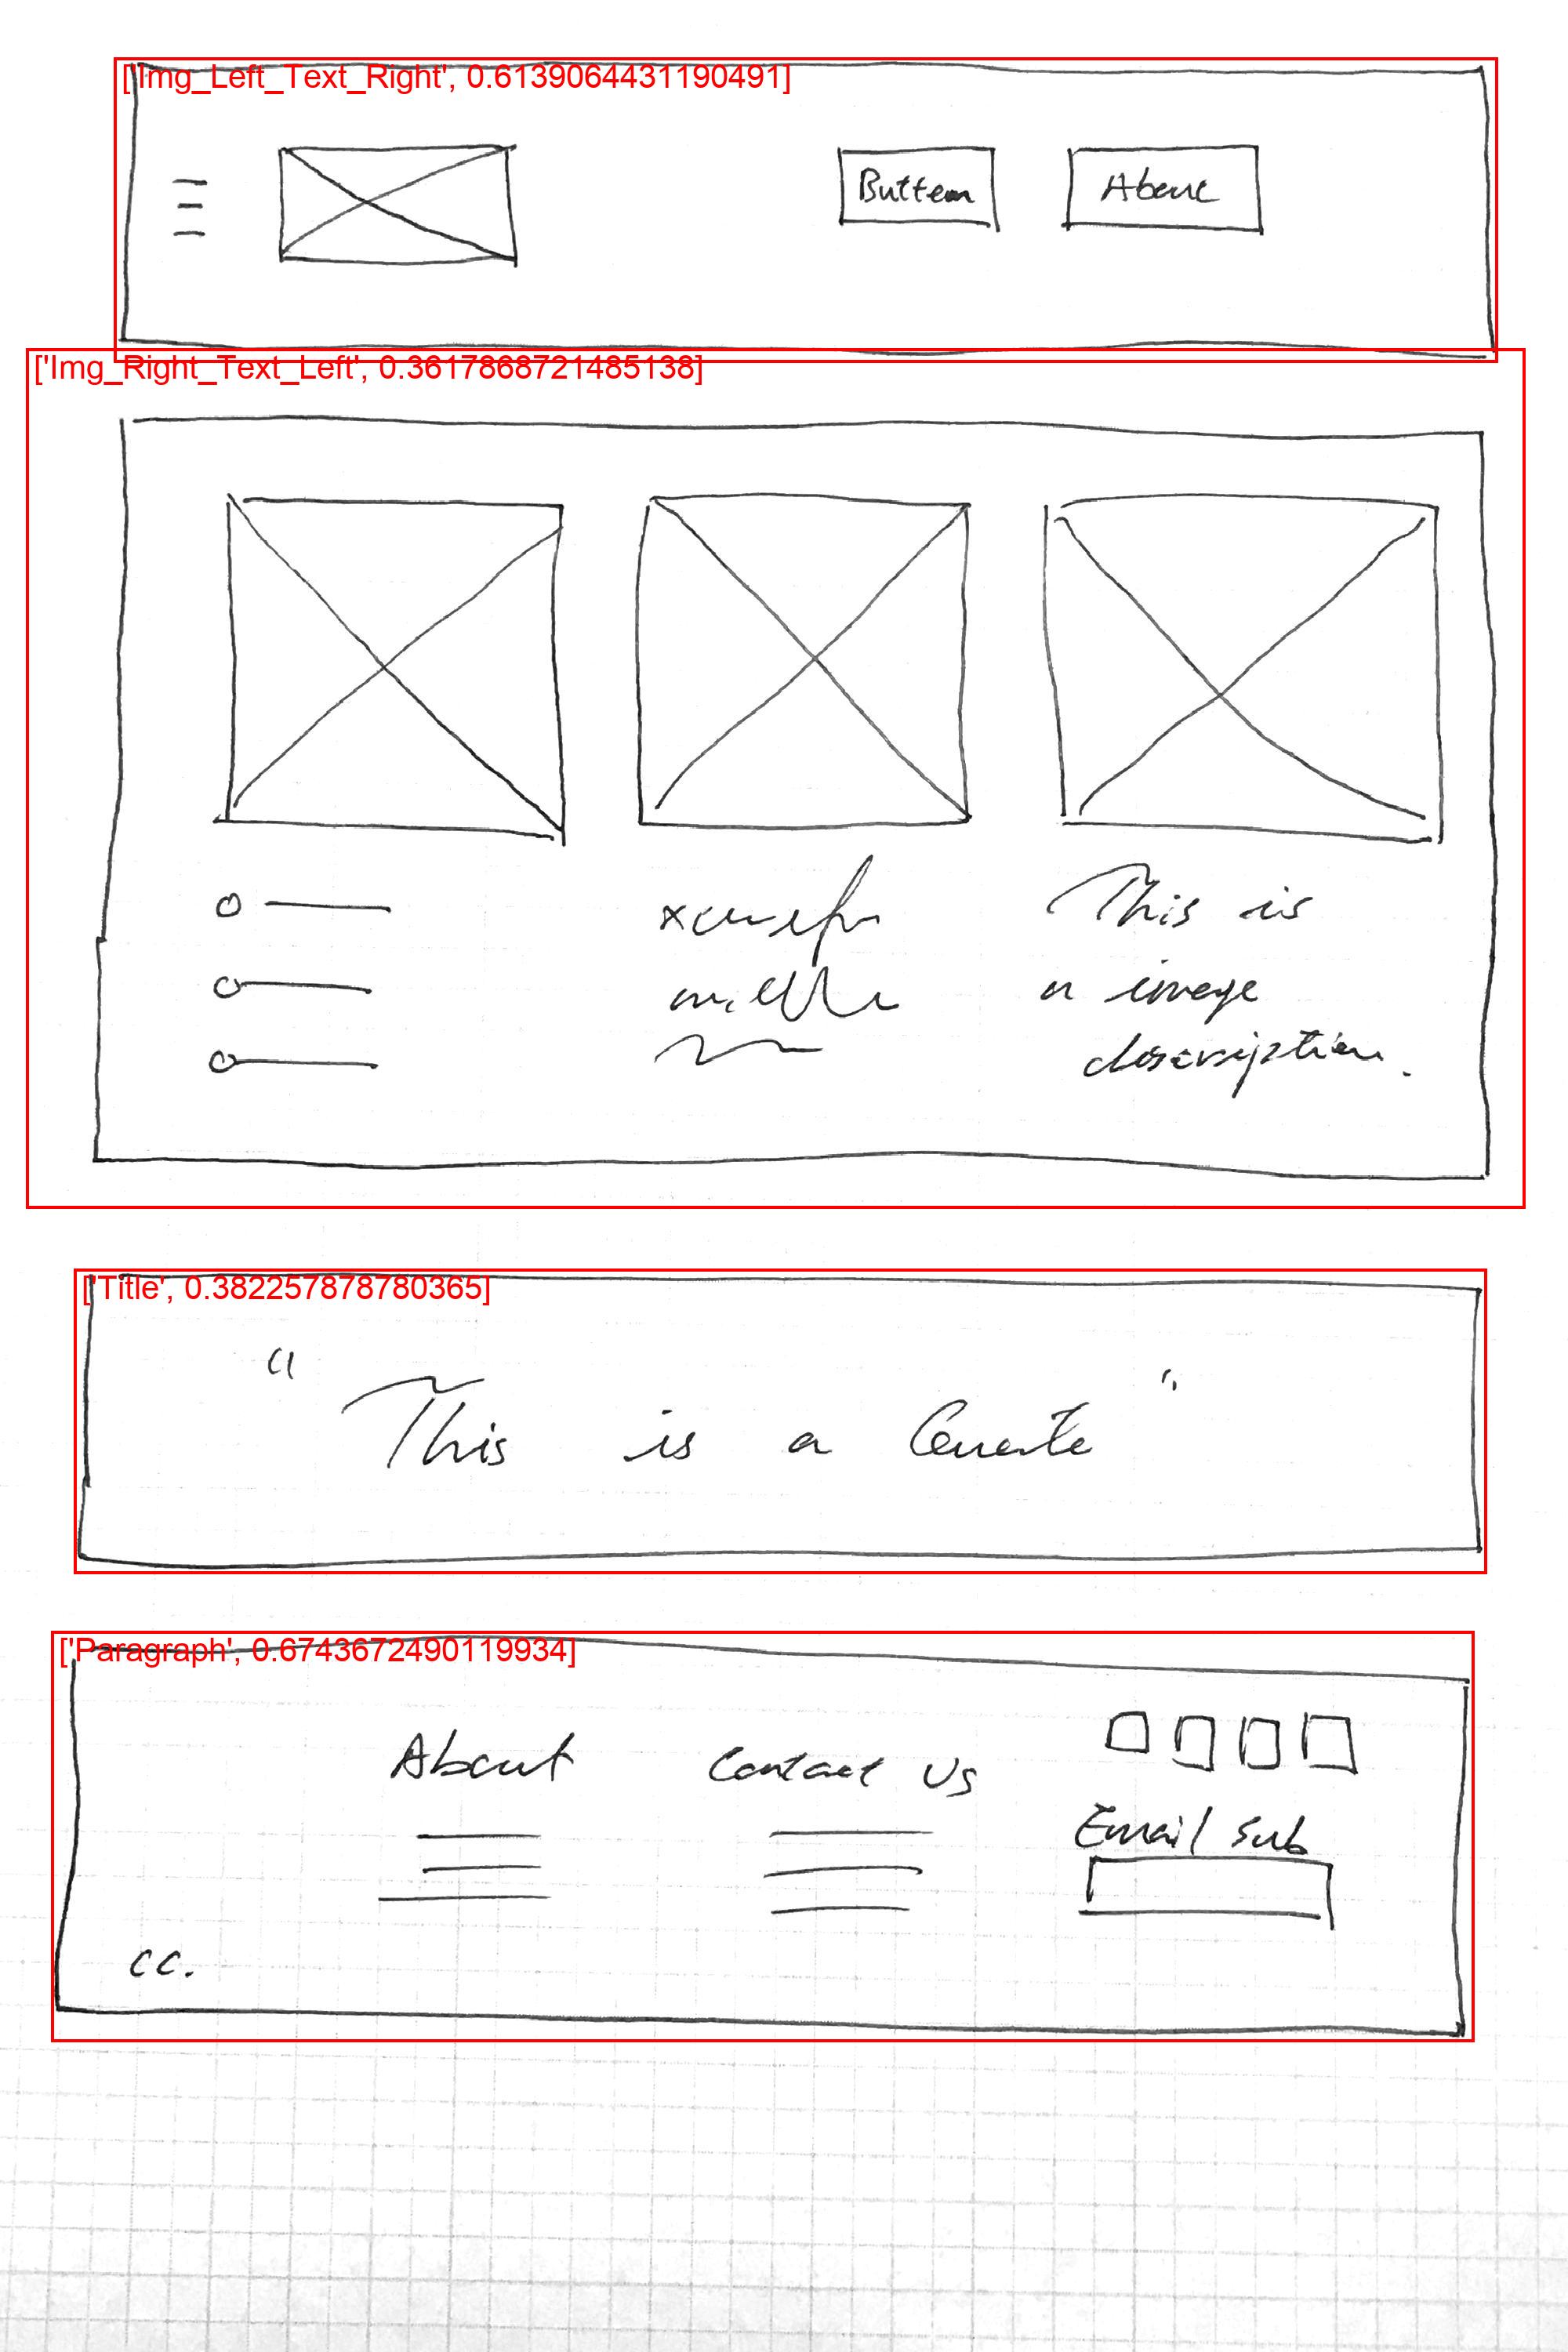 ['Img_Left_Text_Right', 0.6139064431190491]
Button About
['Img_Right_Text_Left', 0.3617868721485138]
This is
a image
description.
['Title', 0.382257878780365]
" This is a Quote "
['Paragraph', 0.6743672490119934]
About Contact Us
Email Sub
cc.